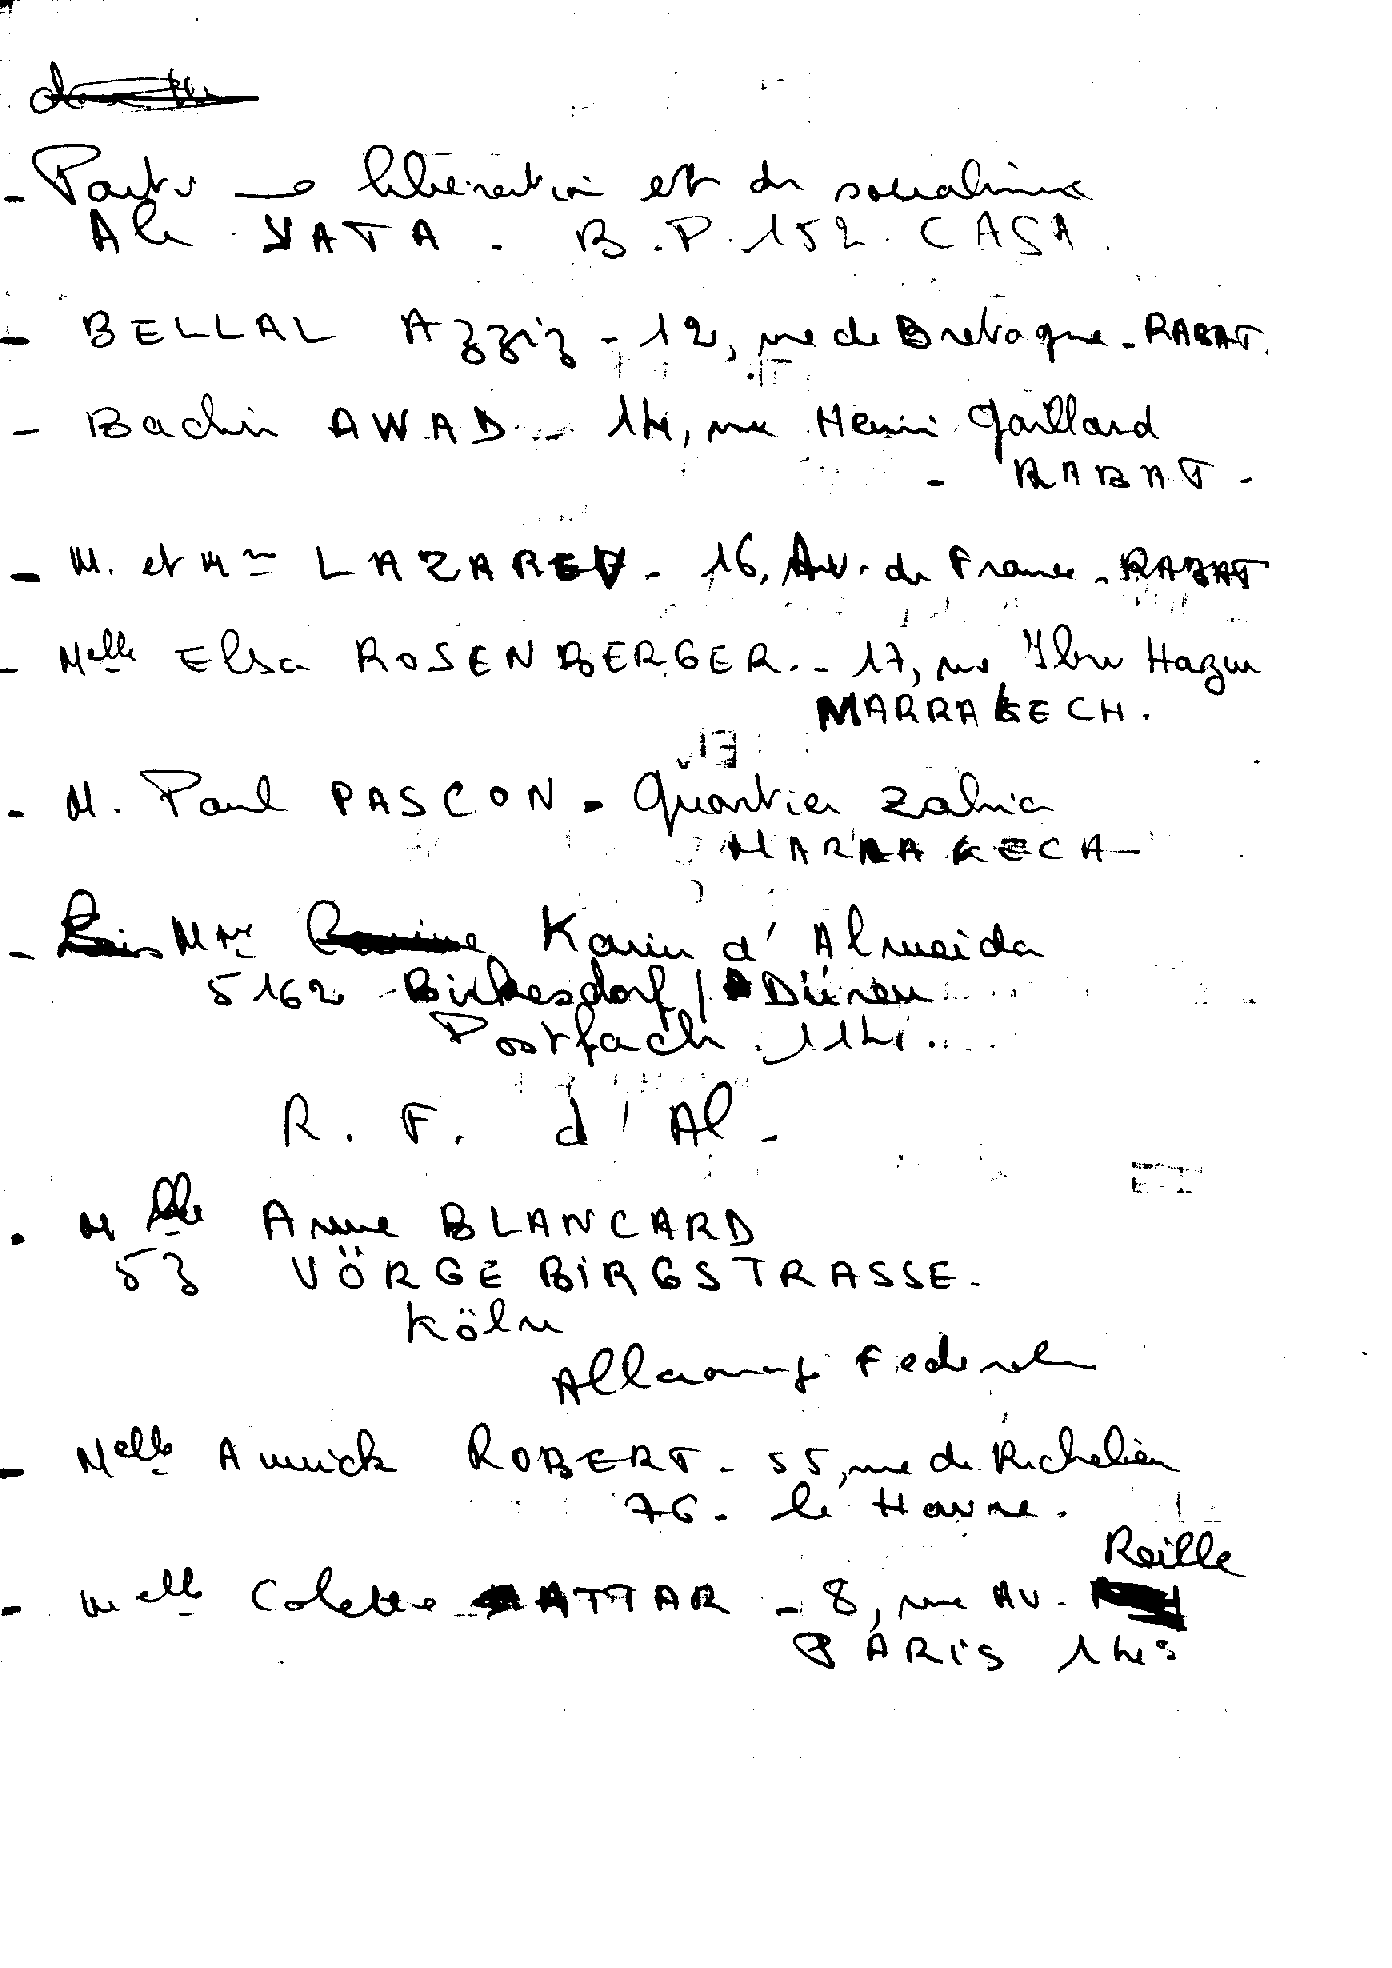 - Parti → libération et du socialisme
Ali YATA - B.P. 152. CASA.
- BELLAL Azziz - 12, rue de Bretagne - RABAT.
- Bachir AWAD - 14, rue Henri Gaillard
- RABAT -
- M. et Mme LAZAREV - 16, Av. de France - RABAT
- Melle Elsa ROSENBERGER - 17, rue Ibn Hazm
MARRAKECH.
- M. Paul PASCON - Quartier Zahia
MARRAKECH
- Mme Karin d'Almeida
5162 Birkesdorf / Düren
Postfach 114.
R. F. d'Al -
. Melle Anne BLANCARD
53 VÖRGEBIRGSTRASSE.
Köln
Allemagne Federale
- Melle Annick ROBERT - 55, rue de Richelieu
76 - le Havre.
Reille
- Melle Colette ATTAR - 8, rue AV.
PARIS 14e